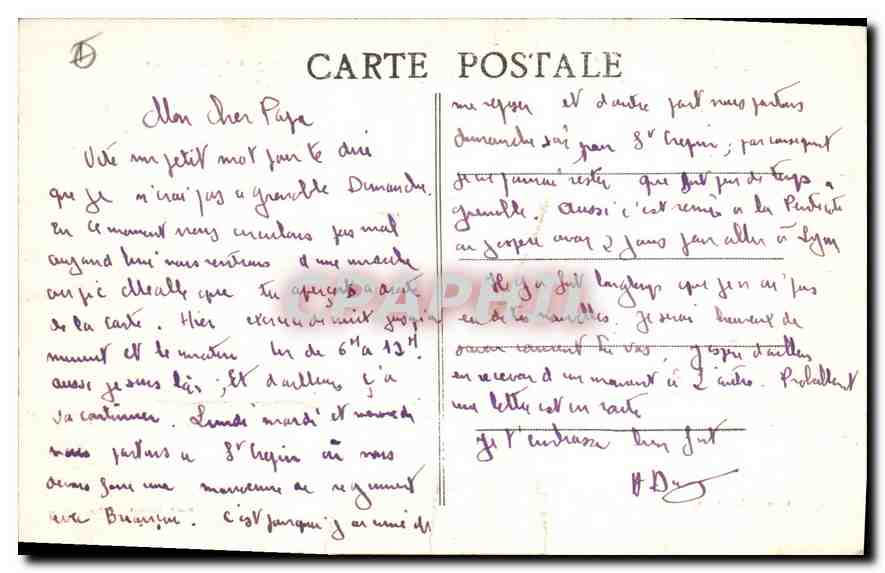 CARTE POSTALE
Mon cher Papa
Vite un petit mot pour te dire
que je n'irai pas a Grenoble Dimanche.
En ce moment nous circulons pas mal
aujourd'hui nous rentrons d'une marche
au pic que tu aperçois a droite
de la carte. Hier exercice de nuit jusqu'a
minuit et le matin de 6H a 12H.
aussi je suis las; Et d'ailleurs ça
va continuer. Lundi mardi et mercredi
nous partons a St Crepin où nous
devons faire une manœuvre de regiment
avec Briançon. C'est pourquoi j'ai envie de
me reposer et d'autre part nous partons
dimanche soir pour St Crepin; par consequent
je ne pourrai rester que fort peu de temps a
Grenoble. Aussi c'est remis a la Pentecote
ou j'espere avoir 2 jours pour aller à Lyon
Il y a fort longtemps que je n'ai pas
eu de tes nouvelles. Je serai heureux de
savoir comment tu vas, j'espere d'ailleurs
en recevoir d'un moment à l'autre. Probablement
une lettre est en route
Je t'embrasse bien fort
CPAPHIL